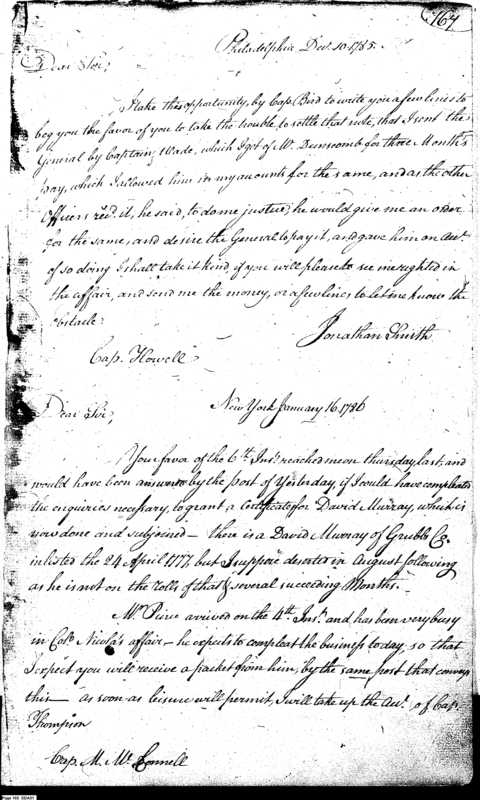 167
Philadelphia Decr. 10. 1785.
Dear Sir,
I take this opportunity, by Cap. Bird to write you a few lines to
beg you the favor of you to take the trouble to settle that note, that I sent the
General by Captain Wade, which I got of Mr. Dunscomb for three Month's
pay, which I allowed him in my accounts for the same, and as the other
Officers recd. it, he said, to do me justice, he would give me an order
for the same, and desire the General to pay it, and gave him on
of so doing I shall take it kind if you will please to see me righted in
the affair, and send me the money, or a few lines to let me know the
obstacle.
Jonathan Smith
Cap. Howell
New York January 16. 1786
Dear Sir,
Your favor of the 6th. Inst. reached me on thursday last, and
would have been answered by the post of Yesterday, if I could have compleated
the enquiries necessary, to grant a Certificate for David Murray, which is
now done and subjoined — there is a David Murray of Grubbs Co.
inlisted the 24 April 1777. but I suppose deserted in August following
as he is not on the rolls of that & several succeeding Months.
Mr. Pierce arrived on the 4th. Inst. and has been very busy
in Colo. Nicola's affair — he expects to compleat the business today, so that
I expect you will receive a packet from him, by the same post that conveys
this — as soon as leisure will permit, I will take up the of Cap.
Thompson
Cap. M. McConnell